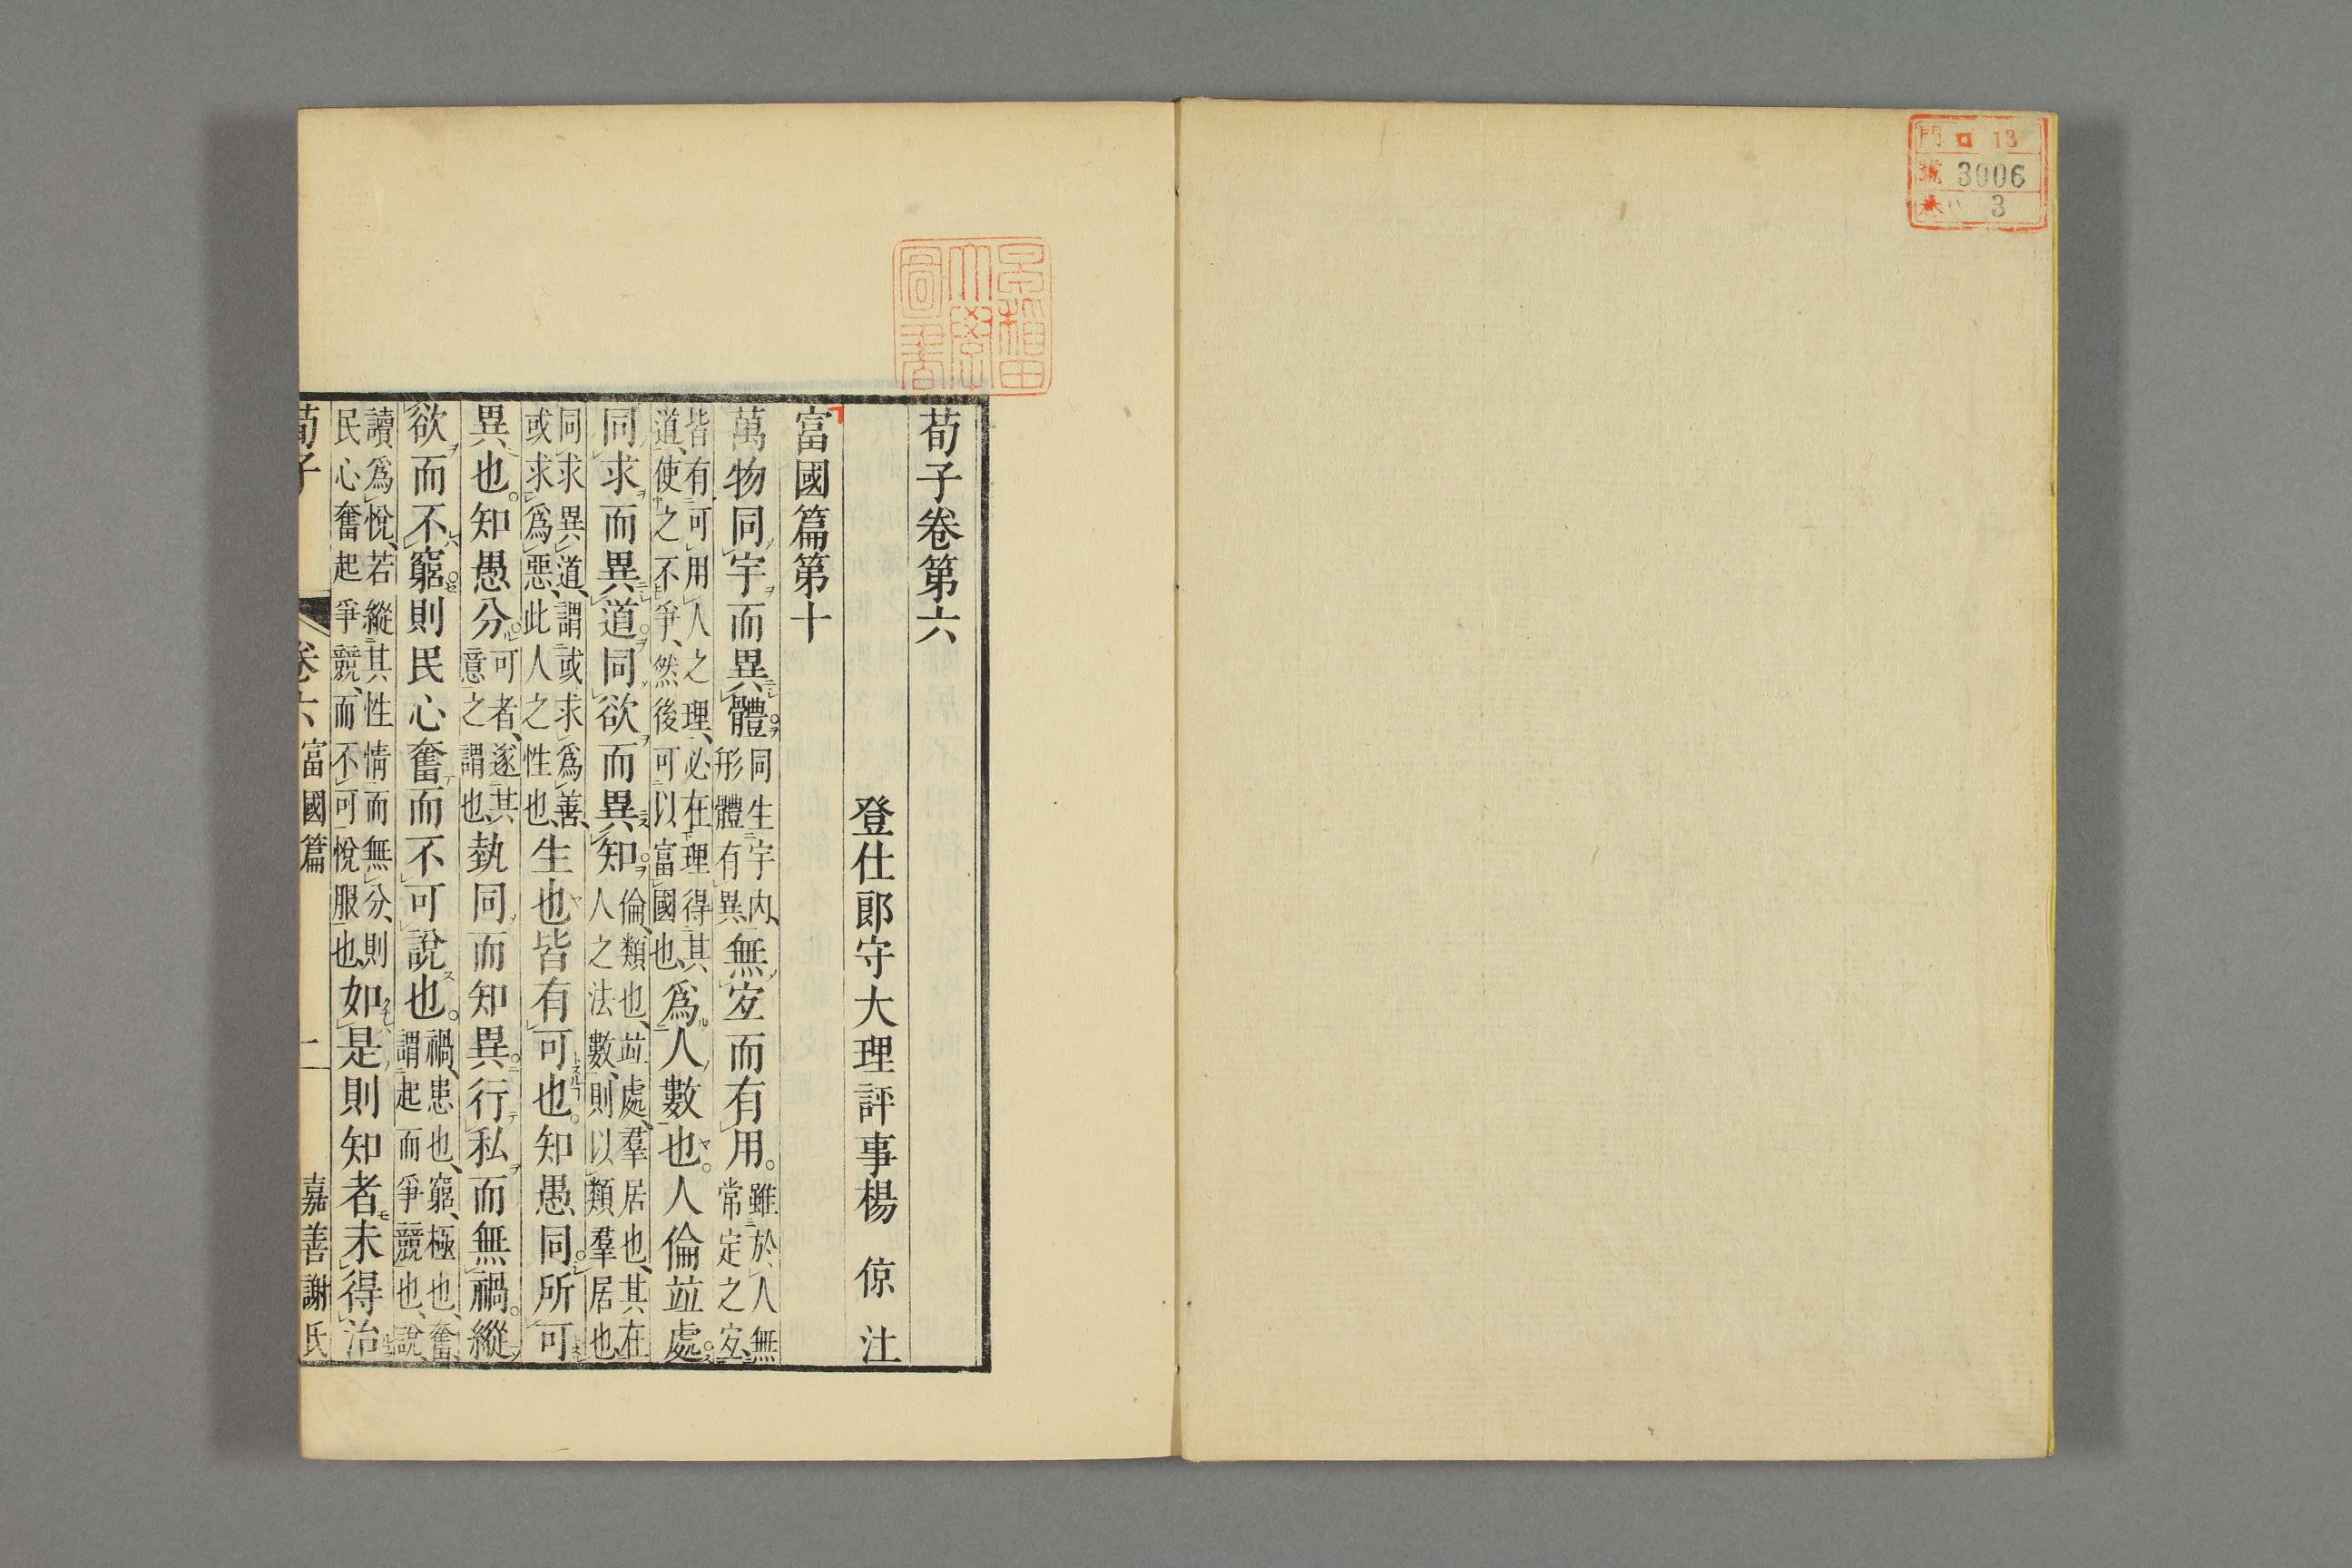 門 ロ 13
號 3006
卷 3
早稲田大學圖書
荀子卷第六
登仕郎守大理評事楊 倞 注
富國篇第十
萬物同宇而異體。同生宇內、形體有異、無宐而有用。雖於人無常定之宐、
皆有可用人之理、必在理得其道、使之不爭、然後可以富國也、爲人數也。人倫竝處。
同求而異道。同欲而異知。倫、類也、竝處、羣居也、其在人之法數、則以類羣居也
同求異道、謂或求爲善、或求爲惡、此人之性也、生也皆有可也。知愚同。所可
異也。知愚分。可者、遂其意之謂也、埶同而知異。行私而無禍。縱
欲而不窮。則民心奮而不可說也。禍、患也、窮、極也、奮、謂起而爭競也、說、
讀爲悅、若縱其性情而無分、則民心奮起爭競、而不可悅服也、如是則知者未得治
荀子 卷六 富國篇 嘉善謝氏